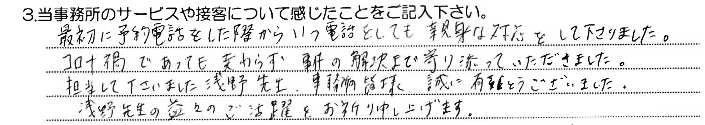 3.当事務所のサービスや接客について感じたことをご記入下さい。
最初に予約電話をした際からいつ電話をしても親身な対応をして下さりました。
コロナ禍であっても変わらず事件の解決まで寄り添っていただきました。
担当して下さいました浅野先生、事務所皆様 誠に有難とうございました。
浅野先生の益々のご活躍をお祈り申し上げます。